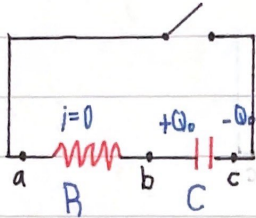 i=0 +Q₀ -Q₀
a b c
R C